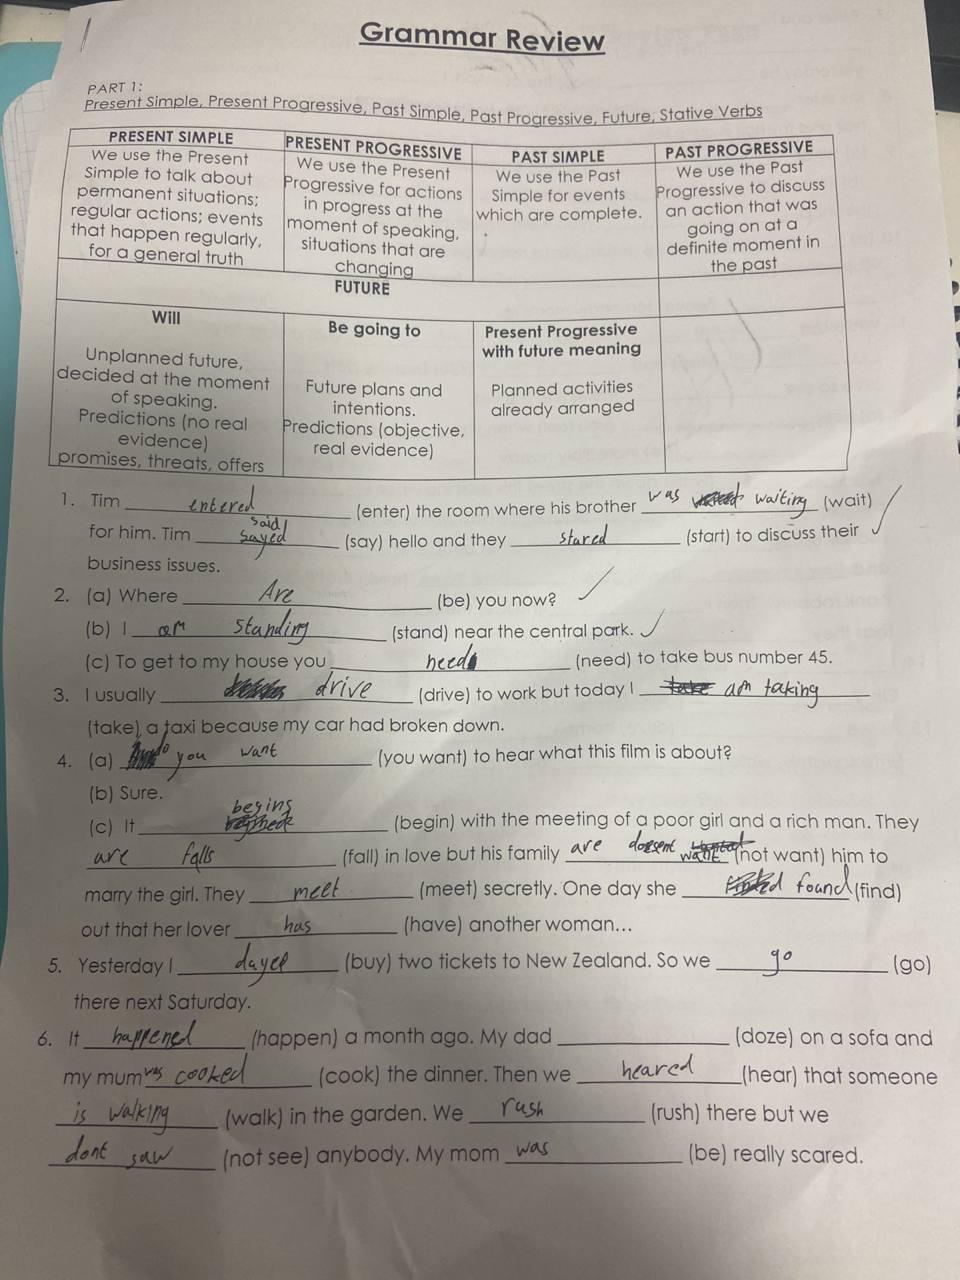 Grammar Review
PART 1:
Present Simple, Present Progressive, Past Simple, Past Progressive, Future, Stative Verbs
PRESENT SIMPLE
We use the Present
Simple to talk about
permanent situations;
regular actions; events
that happen regularly,
for a general truth
PRESENT PROGRESSIVE
We use the Present
Progressive for actions
in progress at the
moment of speaking,
situations that are
changing
PAST SIMPLE
We use the Past
Simple for events
which are complete.
PAST PROGRESSIVE
We use the Past
Progressive to discuss
an action that was
going on at a
definite moment in
the past
FUTURE
Will
Unplanned future,
decided at the moment
of speaking.
Predictions (no real
evidence)
promises, threats, offers
Be going to
Future plans and
intentions.
Predictions (objective,
real evidence)
Present Progressive
with future meaning
Planned activities
already arranged
1. Tim entered (enter) the room where his brother was waiting (wait)
said
for him. Tim sayed (say) hello and they stared (start) to discuss their
business issues.
2. (a) Where Are (be) you now?
(b) I am standing (stand) near the central park.
(c) To get to my house you need (need) to take bus number 45.
3. I usually drive (drive) to work but today I take am taking
(take) a taxi because my car had broken down.
4. (a) do you want (you want) to hear what this film is about?
(b) Sure.
begins
(c) It (begin) with the meeting of a poor girl and a rich man. They
are falls (fall) in love but his family are doesent want (not want) him to
marry the girl. They meet (meet) secretly. One day she found (find)
out that her lover has (have) another woman...
5. Yesterday I (buy) two tickets to New Zealand. So we go (go)
there next Saturday.
6. It happened (happen) a month ago. My dad (doze) on a sofa and
my mum was cooked (cook) the dinner. Then we heared (hear) that someone
is walking (walk) in the garden. We rush (rush) there but we
dont saw (not see) anybody. My mom was (be) really scared.